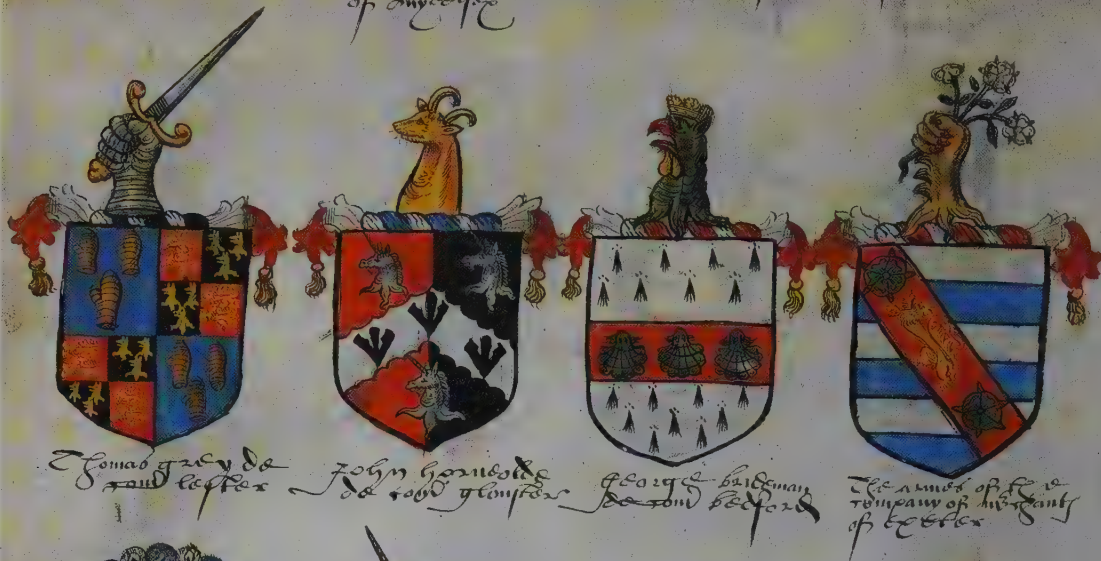 of
Thomas grey de
com lester
John horneolde
de com gloister
George brideman
de com bedford
The armes of the
company of merchants
of Exeter